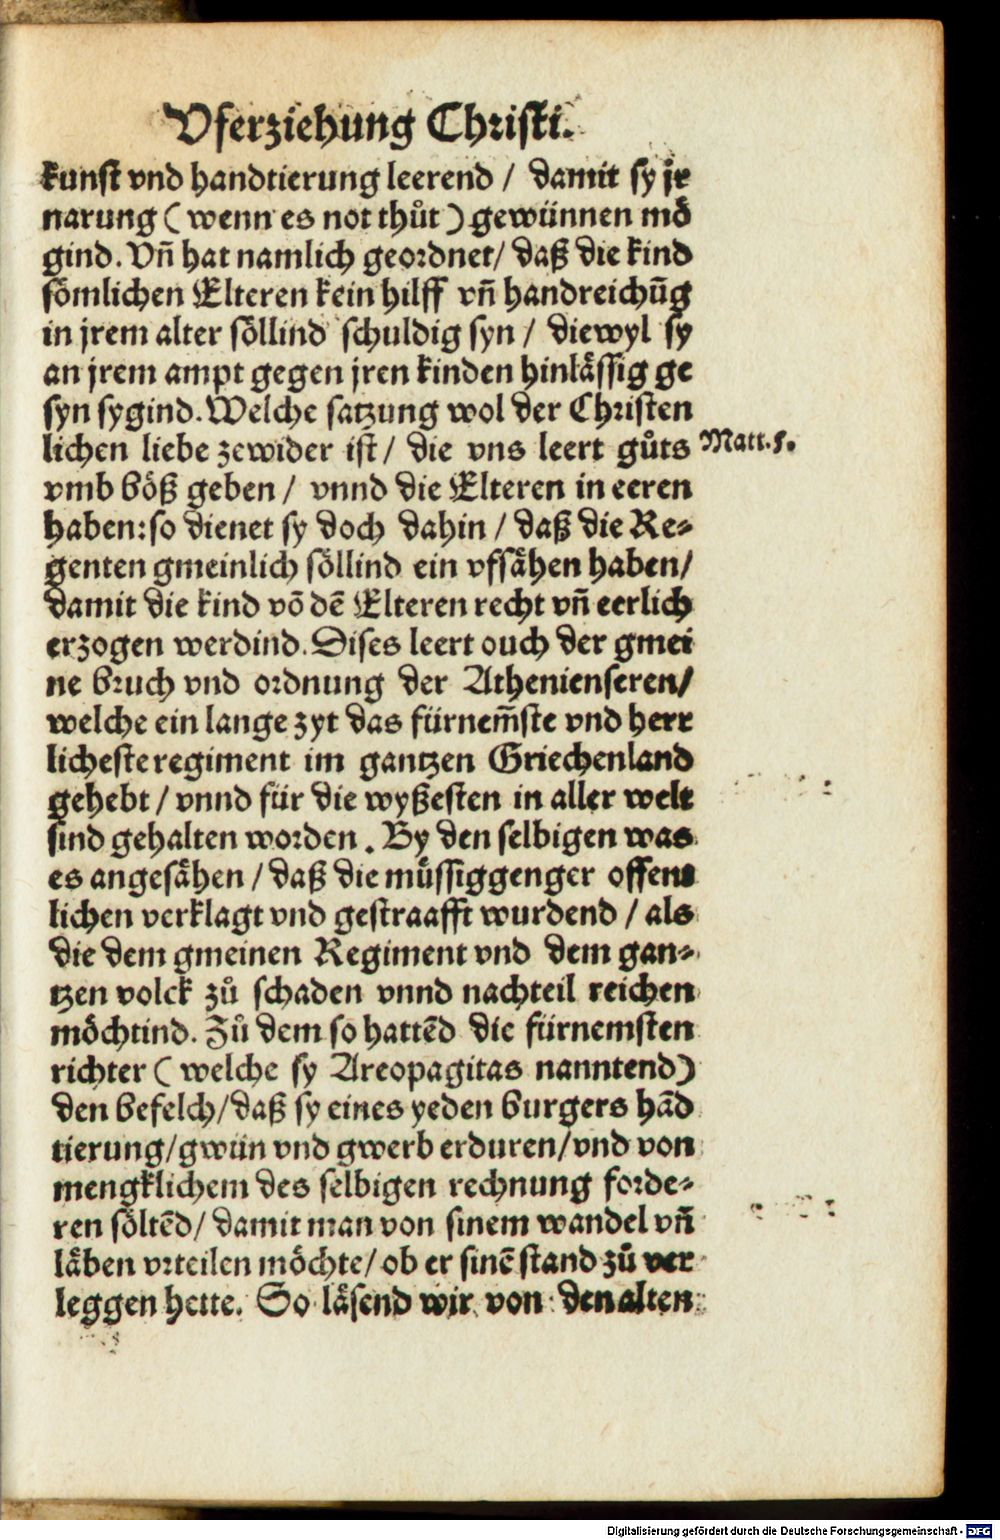 Vferziehung Christi.
kunst vnd handtierung leerend / damit sy jr
narung ( wenn es not thůt ) gewünnen mö
gind. Vñ hat namlich geordnet / daß die kind
sömlichen Elteren kein hilff vñ handreichũg
in jrem alter söllind schuldig syn / diewyl sy
an jrem ampt gegen jren kinden hinlåssig ge
syn sygind. Welche satzung wol der Christen
lichen liebe zewider ist / die vns leert gůts
Matt.5.
vmb bôß geben / vnnd die Elteren in eeren
haben: so dienet sy doch dahin / daß die Re-
genten gmeinlich söllind ein vfsåhen haben /
damit die kind võ dẽ Elteren recht vñ eerlich
erzogen werdind. Dises leert ouch der gmei
ne bruch vnd ordnung der Athenienseren /
welche ein lange zyt das fürnem̃ste vnd herr
licheste regiment im gantzen Griechenland
gehebt / vnnd für die wyßesten in aller welt
sind gehalten worden. By den selbigen was
es angesåhen / daß die müssiggenger offent
lichen verklagt vnd gestraafft wurdend / als
die dem gmeinen Regiment vnd dem gan-
tzen volck zů schaden vnnd nachteil reichen
möchtind. Zů dem so hattẽd die fürnemsten
richter ( welche sy Areopagitas nanntend )
den befelch / daß sy eines yeden burgers hãd
tierung / gwün vnd gwerb erduren / vnd von
mengklichem des selbigen rechnung forde-
ren söltẽd / damit man von sinem wandel vñ
låben vrteilen möchte / ob er sinẽ stand zů ver
leggen hette. So låsend wir von den alten
Digitalisierung gefördert durch die Deutsche Forschungsgemeinschaft - DFG